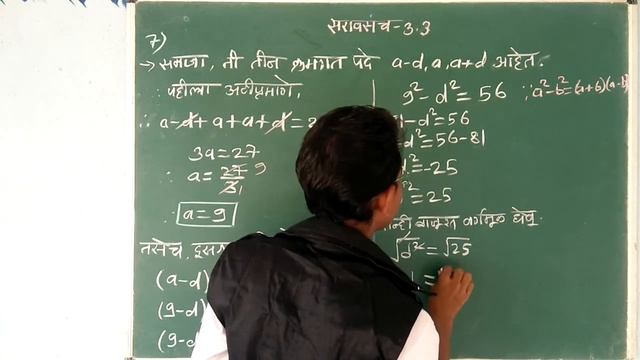 सरावसंच - 3.3
7)
→ समजा, ती तीन क्रमागत पदे a-d, a, a+d आहेत.
∴ पहिला अटीप्रमाणे,
∴ a-d+a+a+d =
3a = 27
∴ a = 27/3 9/1
∴ a = 9
तसेच,
(a-d)
(9-d)
(9-d
9² - d² = 56 ∵ a²-b²=(a+b)(a-b)
- d² = 56
d² = 56-81
-25
² = 25
वर्गमूळ घेवु.
√d² = √25
=